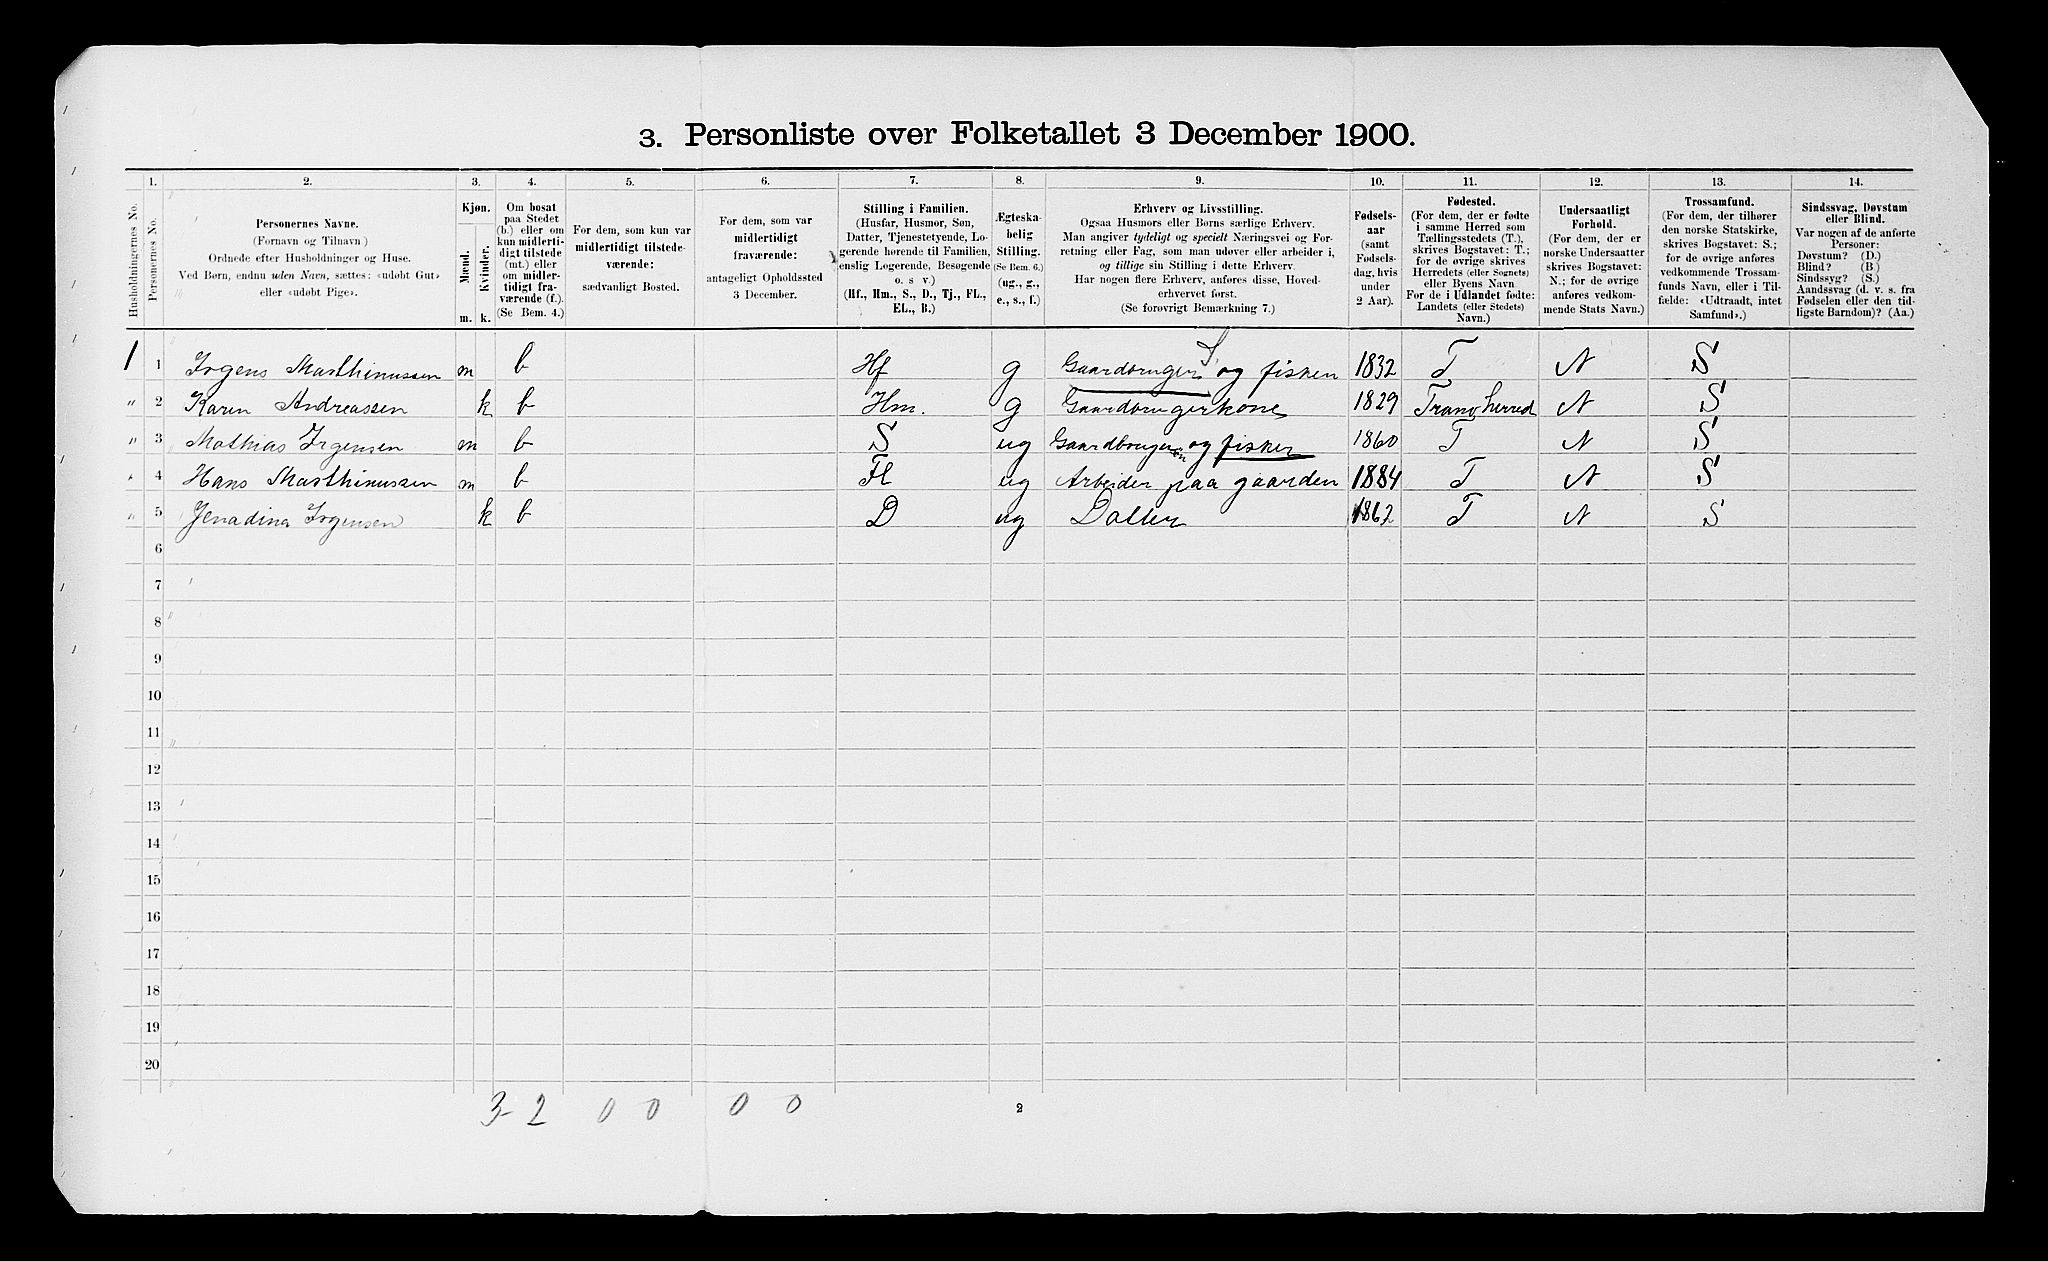 3. Personliste over Folketallet 3 December 1900.
1. 2. 3. 4. 5. 6. 7. 8. 9. 10. 11. 12. 13. 14.
Husholdningernes No.
Personernes No.
Personernes Navne.
(Fornavn og Tilnavn)
Ordnede efter Husholdninger og Huse.
Ved Børn, endnu uden Navn, sættes: «udøbt Gut»
eller «udøbt Pige».
Kjøn.
Mænd.
Kvinder.
m. k.
Om bosat
paa Stedet
(b.) eller om
kun midlerti-
digt tilstede
(mt.) eller
om midler-
tidigt fra-
værende (f.).
(Se Bem. 4.)
For dem, som kun var
midlertidigt tilstede-
værende:
sædvanligt Bosted.
For dem, som var
midlertidigt
fraværende:
antageligt Opholdssted
3 December.
Stilling i Familien.
(Husfar, Husmor, Søn,
Datter, Tjenestetyende, Lo-
gerende hørende til Familien,
enslig Logerende, Besøgende
o. s v.)
(Hf., Hm., S., D., Tj., FL.,
EL., B.)
Ægteska-
belig
Stilling.
(Se Bem. 6.)
(ug., g.,
e., s., f.)
Erhverv og Livsstilling.
Ogsaa Husmors eller Børns særlige Erhverv.
Man angiver tydeligt og specielt Næringsvei og For-
retning eller Fag, som man udøver eller arbeider i,
og tillige sin Stilling i dette Erhverv.
Har nogen flere Erhverv, anføres disse, Hoved-
erhvervet først.
(Se forøvrigt Bemærkning 7.)
Fødsels-
aar
(samt
Fødsels-
dag, hvis
under
2 Aar).
Fødested.
(For dem, der er fødte
i samme Herred som
Tællingsstedets (T.),
skrives Bogstavet: T.;
for de øvrige skrives
Herredets (eller Sognets)
eller Byens Navn
For de i Udlandet fødte:
Landets (eller Stedets)
Navn.)
Undersaatligt
Forhold.
(For dem, der er
norske Undersaatter
skrives Bogstavet:
N.; for de øvrige
anføres vedkom-
mende Stats Navn.)
Trossamfund.
(For dem, der tilhører
den norske Statskirke,
skrives Bogstavet: S.;
for de øvrige anføres
vedkommende Trossam-
funds Navn, eller i Til-
fælde: «Udtraadt, intet
Samfund».)
Sindssvag, Døvstum
eller Blind.
Var nogen af de anførte
Personer:
Døvstum? (D.)
Blind? (B.)
Sindssyg? (S.)
Aandssvag (d. v. s. fra
Fødselen eller den tid-
ligste Barndom)? (Aa.)
1 1 Irgens Marthinussen m b Hf g Gaardbruger S. og fisker 1832 T N S
" 2 Karen Andreassen k b Hm. g Gaardbrugerkone 1829 Tranø herred N S
" 3 Mathias Irgensen m b S ug Gaardbruger og fisker 1860 T N S
" 4 Hans Marthinussen m b Fl ug Arbeider paa gaarden 1884 T N S
" 5 Jenadina Irgensen k b D ug Datter 1862 T N S
6
7
8
9
10
11
12
13
14
15
16
17
18
19
20
3-2 0 0 0 0
2